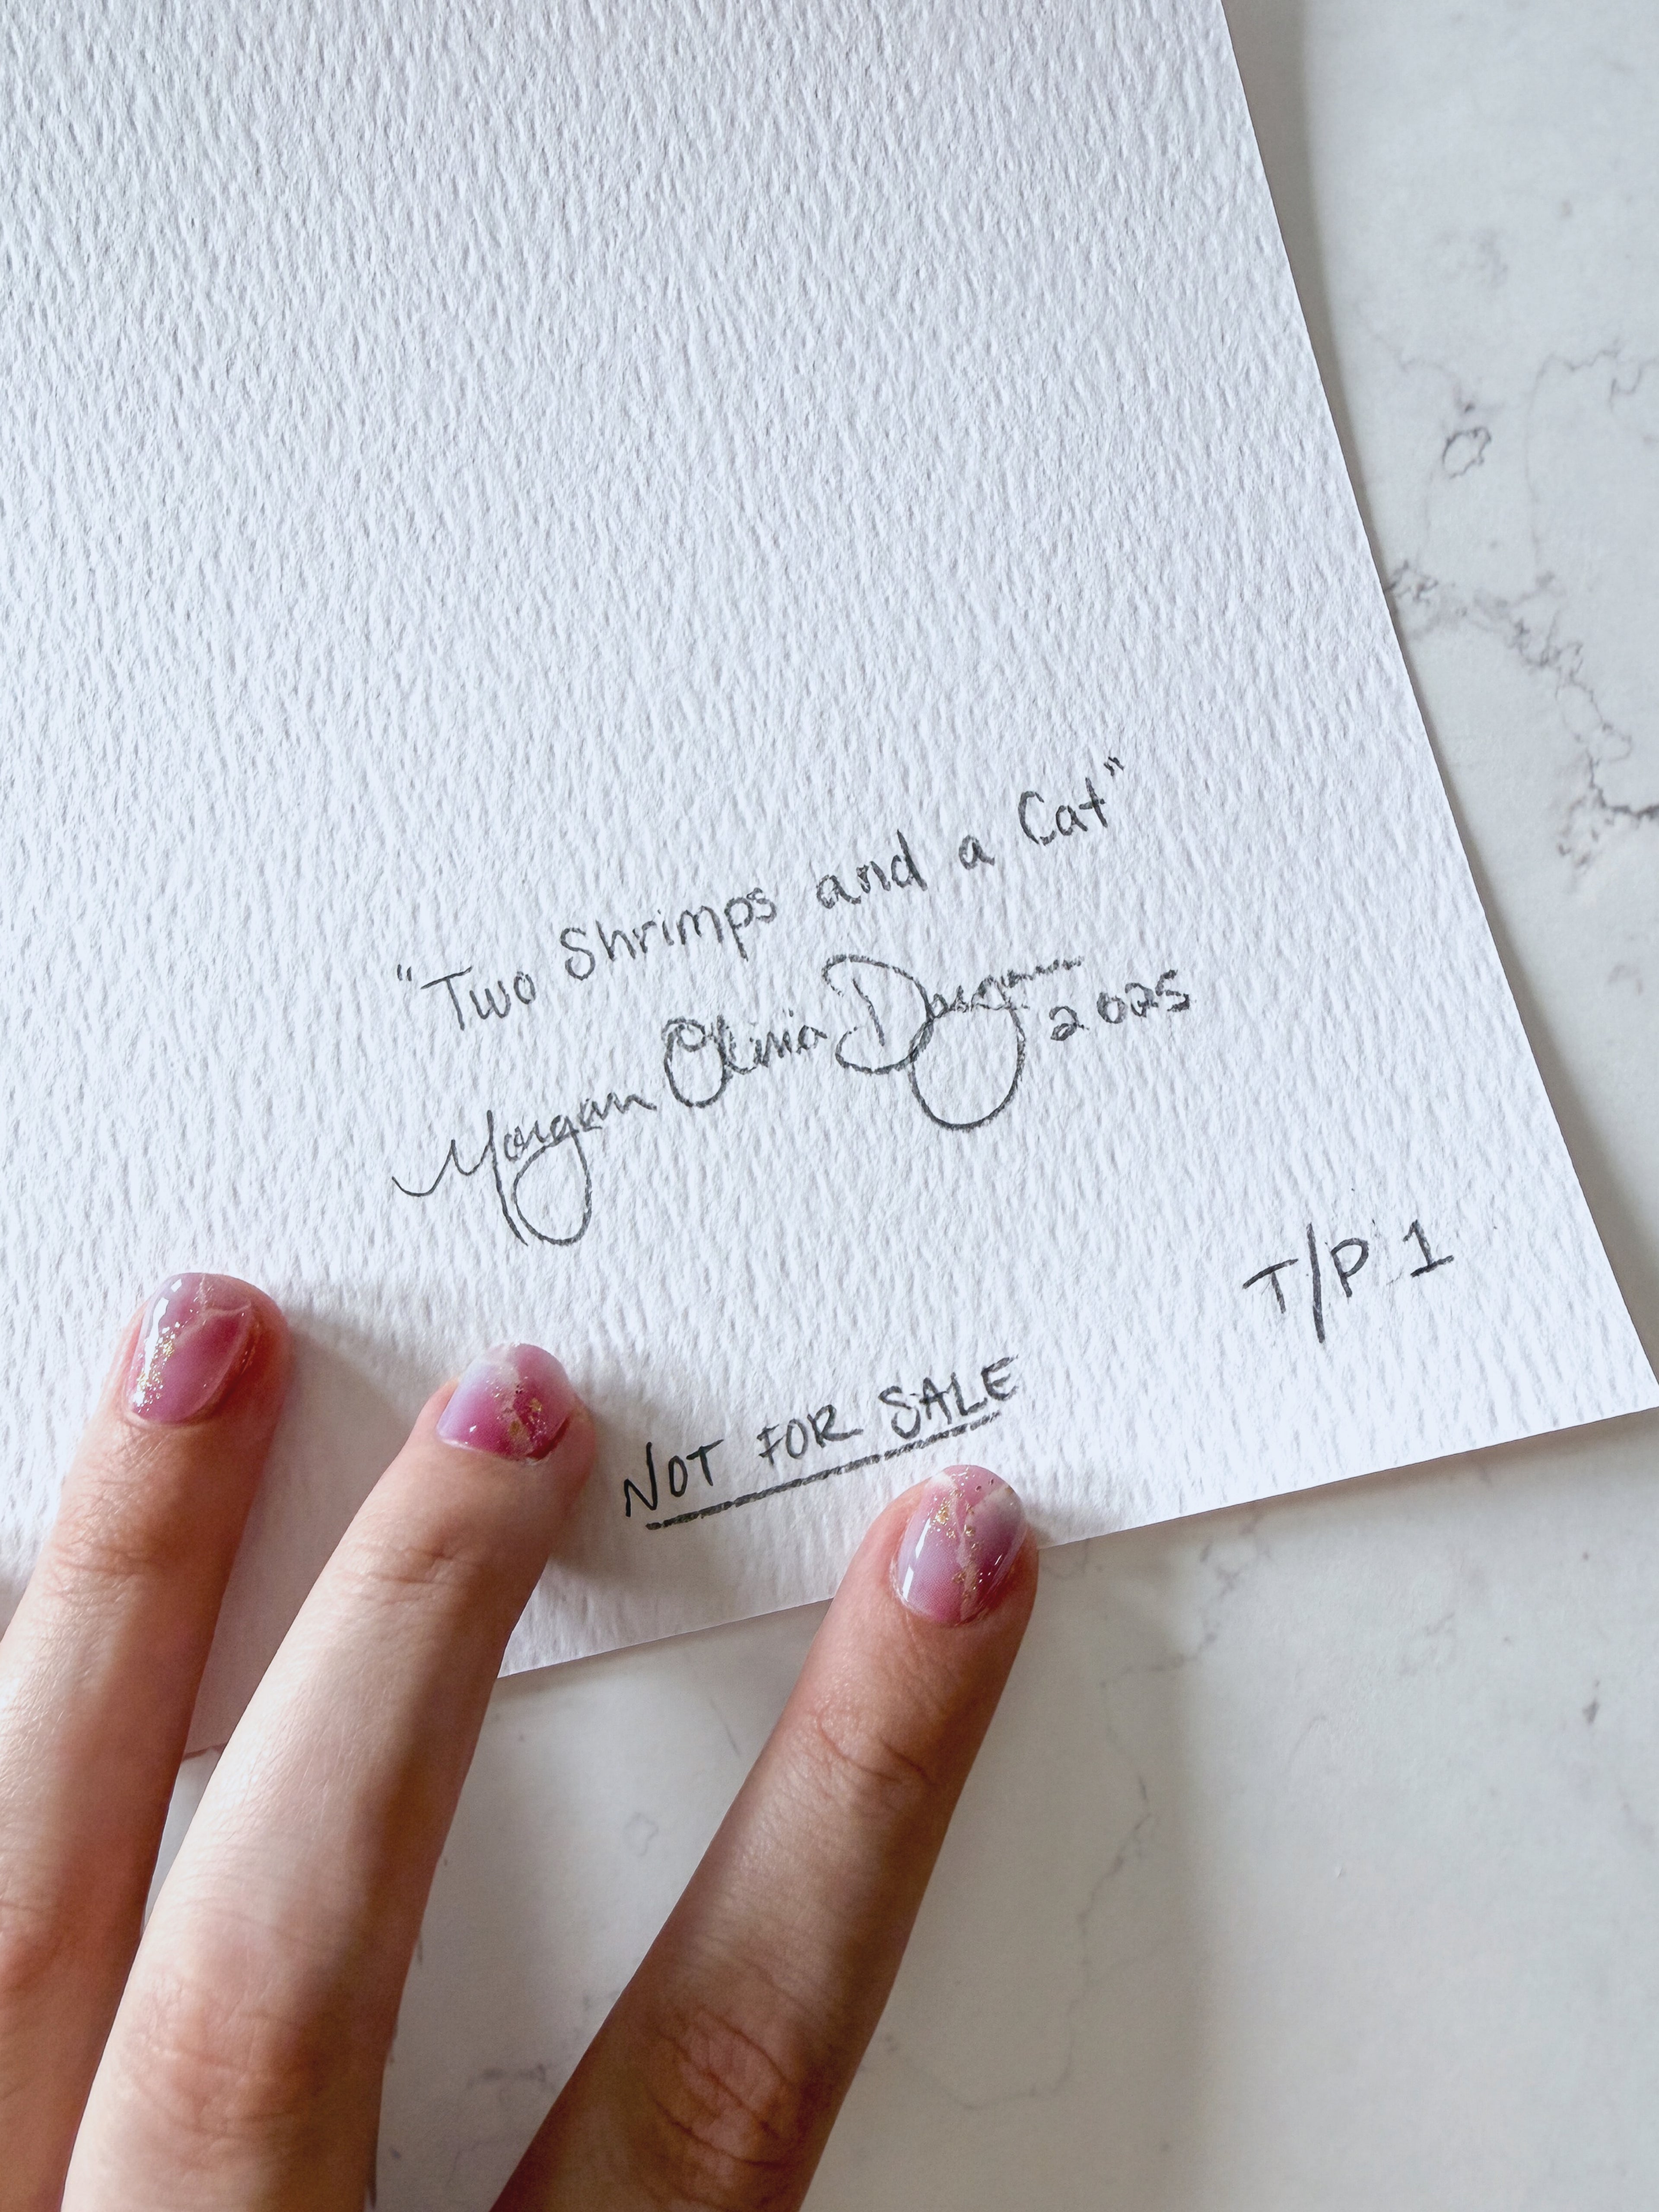 "Two Shrimps and a Cat"
Morgan Olivia 2025
T/P 1
NOT FOR SALE